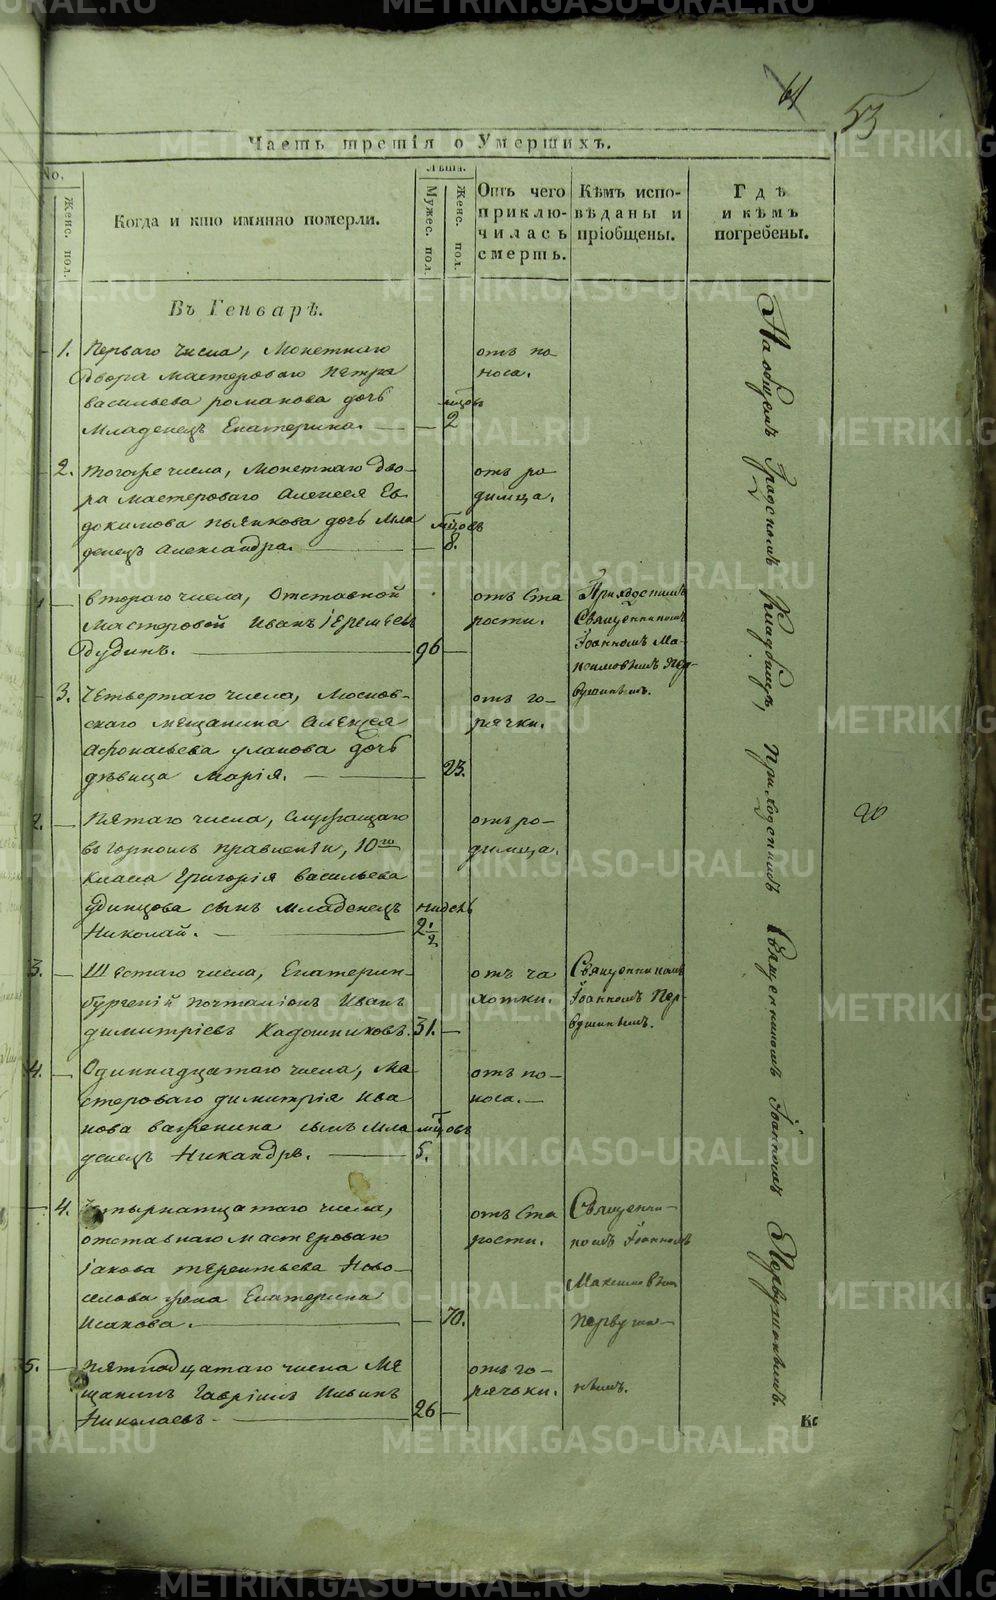 61
53
Часть третія о Умершихъ.
No.
Женс. пол.
Когда и кто имянно померли.
Лѣта.
Мужес. пол.
Женс. пол.
Отъ чего
приклю-
чилась
смерть.
Кѣмъ испо-
вѣданы и
пріобщены.
Гдѣ
и кѣмъ
погребены.
Въ Генварѣ.
1. Перваго числа, Монетнаго
двора мастероваго Петра
васильева романова дочь
Младенецъ Екатерина. мцовъ 2
отъ по-
носа.
2. того же числа, Монетнаго дво-
ра мастероваго Алексея Ев
докимова пьянкова дочь мла
денецъ Александра. мцовъ 8.
отъ ро
димца.
1 втораго числа, Отставной
Мастеровой Иванъ Іеремѣевъ
Дудинъ. 96
отъ ста
рости.
Приходскимъ
Священникомъ
Іоанномъ Ма-
ксимовымъ Пер-
вушинымъ.
3. Четвертаго числа, Москов-
скаго мещанина Алексея
Афонасьева улакова дочь
дѣвица Марія. 23.
отъ го-
рячки.
2. Пятаго числа, Служащаго
въ горномъ правленіи, 10го
класса Григорія васильева
Удинцова сынъ младенецъ
Николай. нидель 2 1/2
отъ ро-
димца.
3. Шестаго числа, Екатерин-
бургскій почталіонъ Иванъ
димитріевъ Кадошниковъ. 31.
отъ ча
хотки.
Священникомъ
Іоанномъ Пер-
вушинымъ.
4. Одиннадцатаго числа, Ма
стероваго димитрія Ива
нова вагренина сынъ мла
денецъ Никандръ. мцовъ 5.
отъ по-
носа.
4. Четырнатцатаго числа,
отставнаго мастероваго
Іакова терентьева Ново-
селова жена Екатерина
Исакова. 70.
отъ ста
рости.
Священни-
комъ Іоанномъ
Максимовым
Первуши-
нымъ.
5. Пятнадцатаго числа Ме
щанинъ Гавріилъ Ильинъ
Николаевъ. 26
отъ го-
рячьки.
На общемъ Градскомъ Кладбищѣ, приходскимъ Священникомъ Іоанномъ Первушинымъ.
20
Кс
METRIKI.GASO-URAL.RU